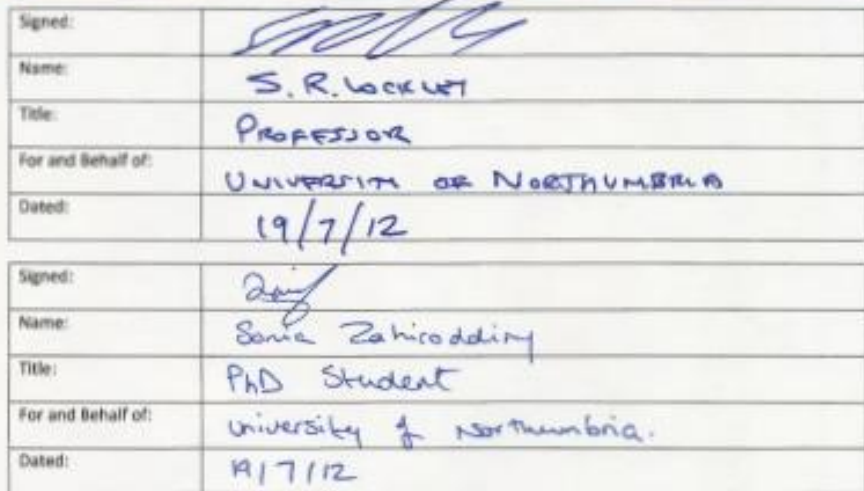 Signed:
Name: S. R. LOCKLEY
Title: PROFESSOR
For and Behalf of: UNIVERSITY OF NORTHUMBRIA
Dated: 19/7/12
Signed:
Name: Sonia Zahiroddiny
Title: PhD Student
For and Behalf of: University of Northumbria.
Dated: 19/7/12